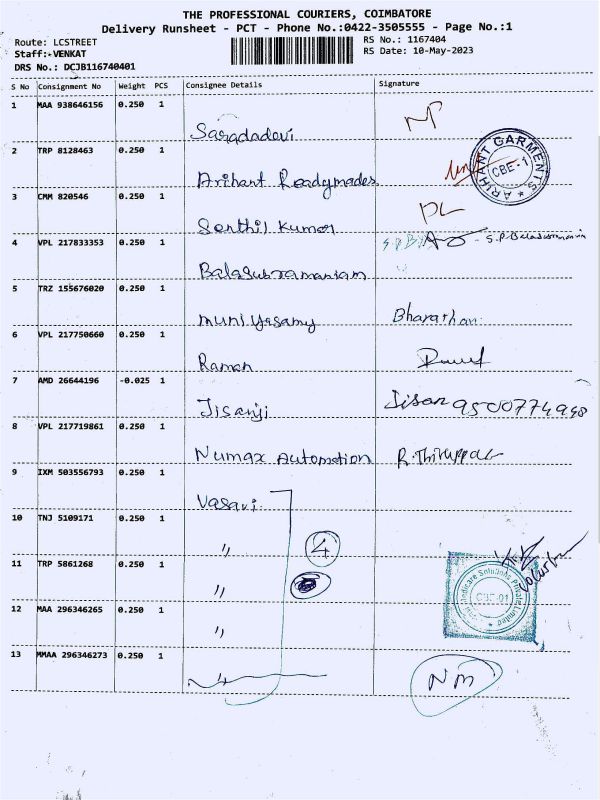 THE PROFESSIONAL COURIERS, COIMBATORE
Delivery Runsheet - PCT - Phone No.:0422-3505555 - Page No.:1
Route: LCSTREET
RS No.: 1167404
Staff:-VENKAT
RS Date: 10-May-2023
DRS No.: DCJB116740401
S No Consignment No Weight PCS Consignee Details Signature
1 MAA 938646156 0.250 1
Saradadevi
2 TRP 8128463 0.250 1
Arihant Readymades
ARIHANT GARMENTS
CBE-1
3 CMM 820546 0.250 1
Senthil Kumar
4 VPL 217833353 0.250 1
S.P.Balasubramaniam
Balasubramaniam
5 TRZ 155676020 0.250 1
Muniyasamy Bharathan
6 VPL 217750660 0.250 1
Raman
7 AMD 26644196 -0.025 1
Jisanji Jisan 9500774948
8 VPL 217719861 0.250 1
Numax Automation R.Thiruppathi
9 IXM 503556793 0.250 1
Vasavi
10 TNJ 5109171 0.250 1
" 4
11 TRP 5861268 0.250 1
"
Medicare Solutions Private Limited
CBE-01
12 MAA 296346265 0.250 1
"
13 MMAA 296346273 0.250 1
NM